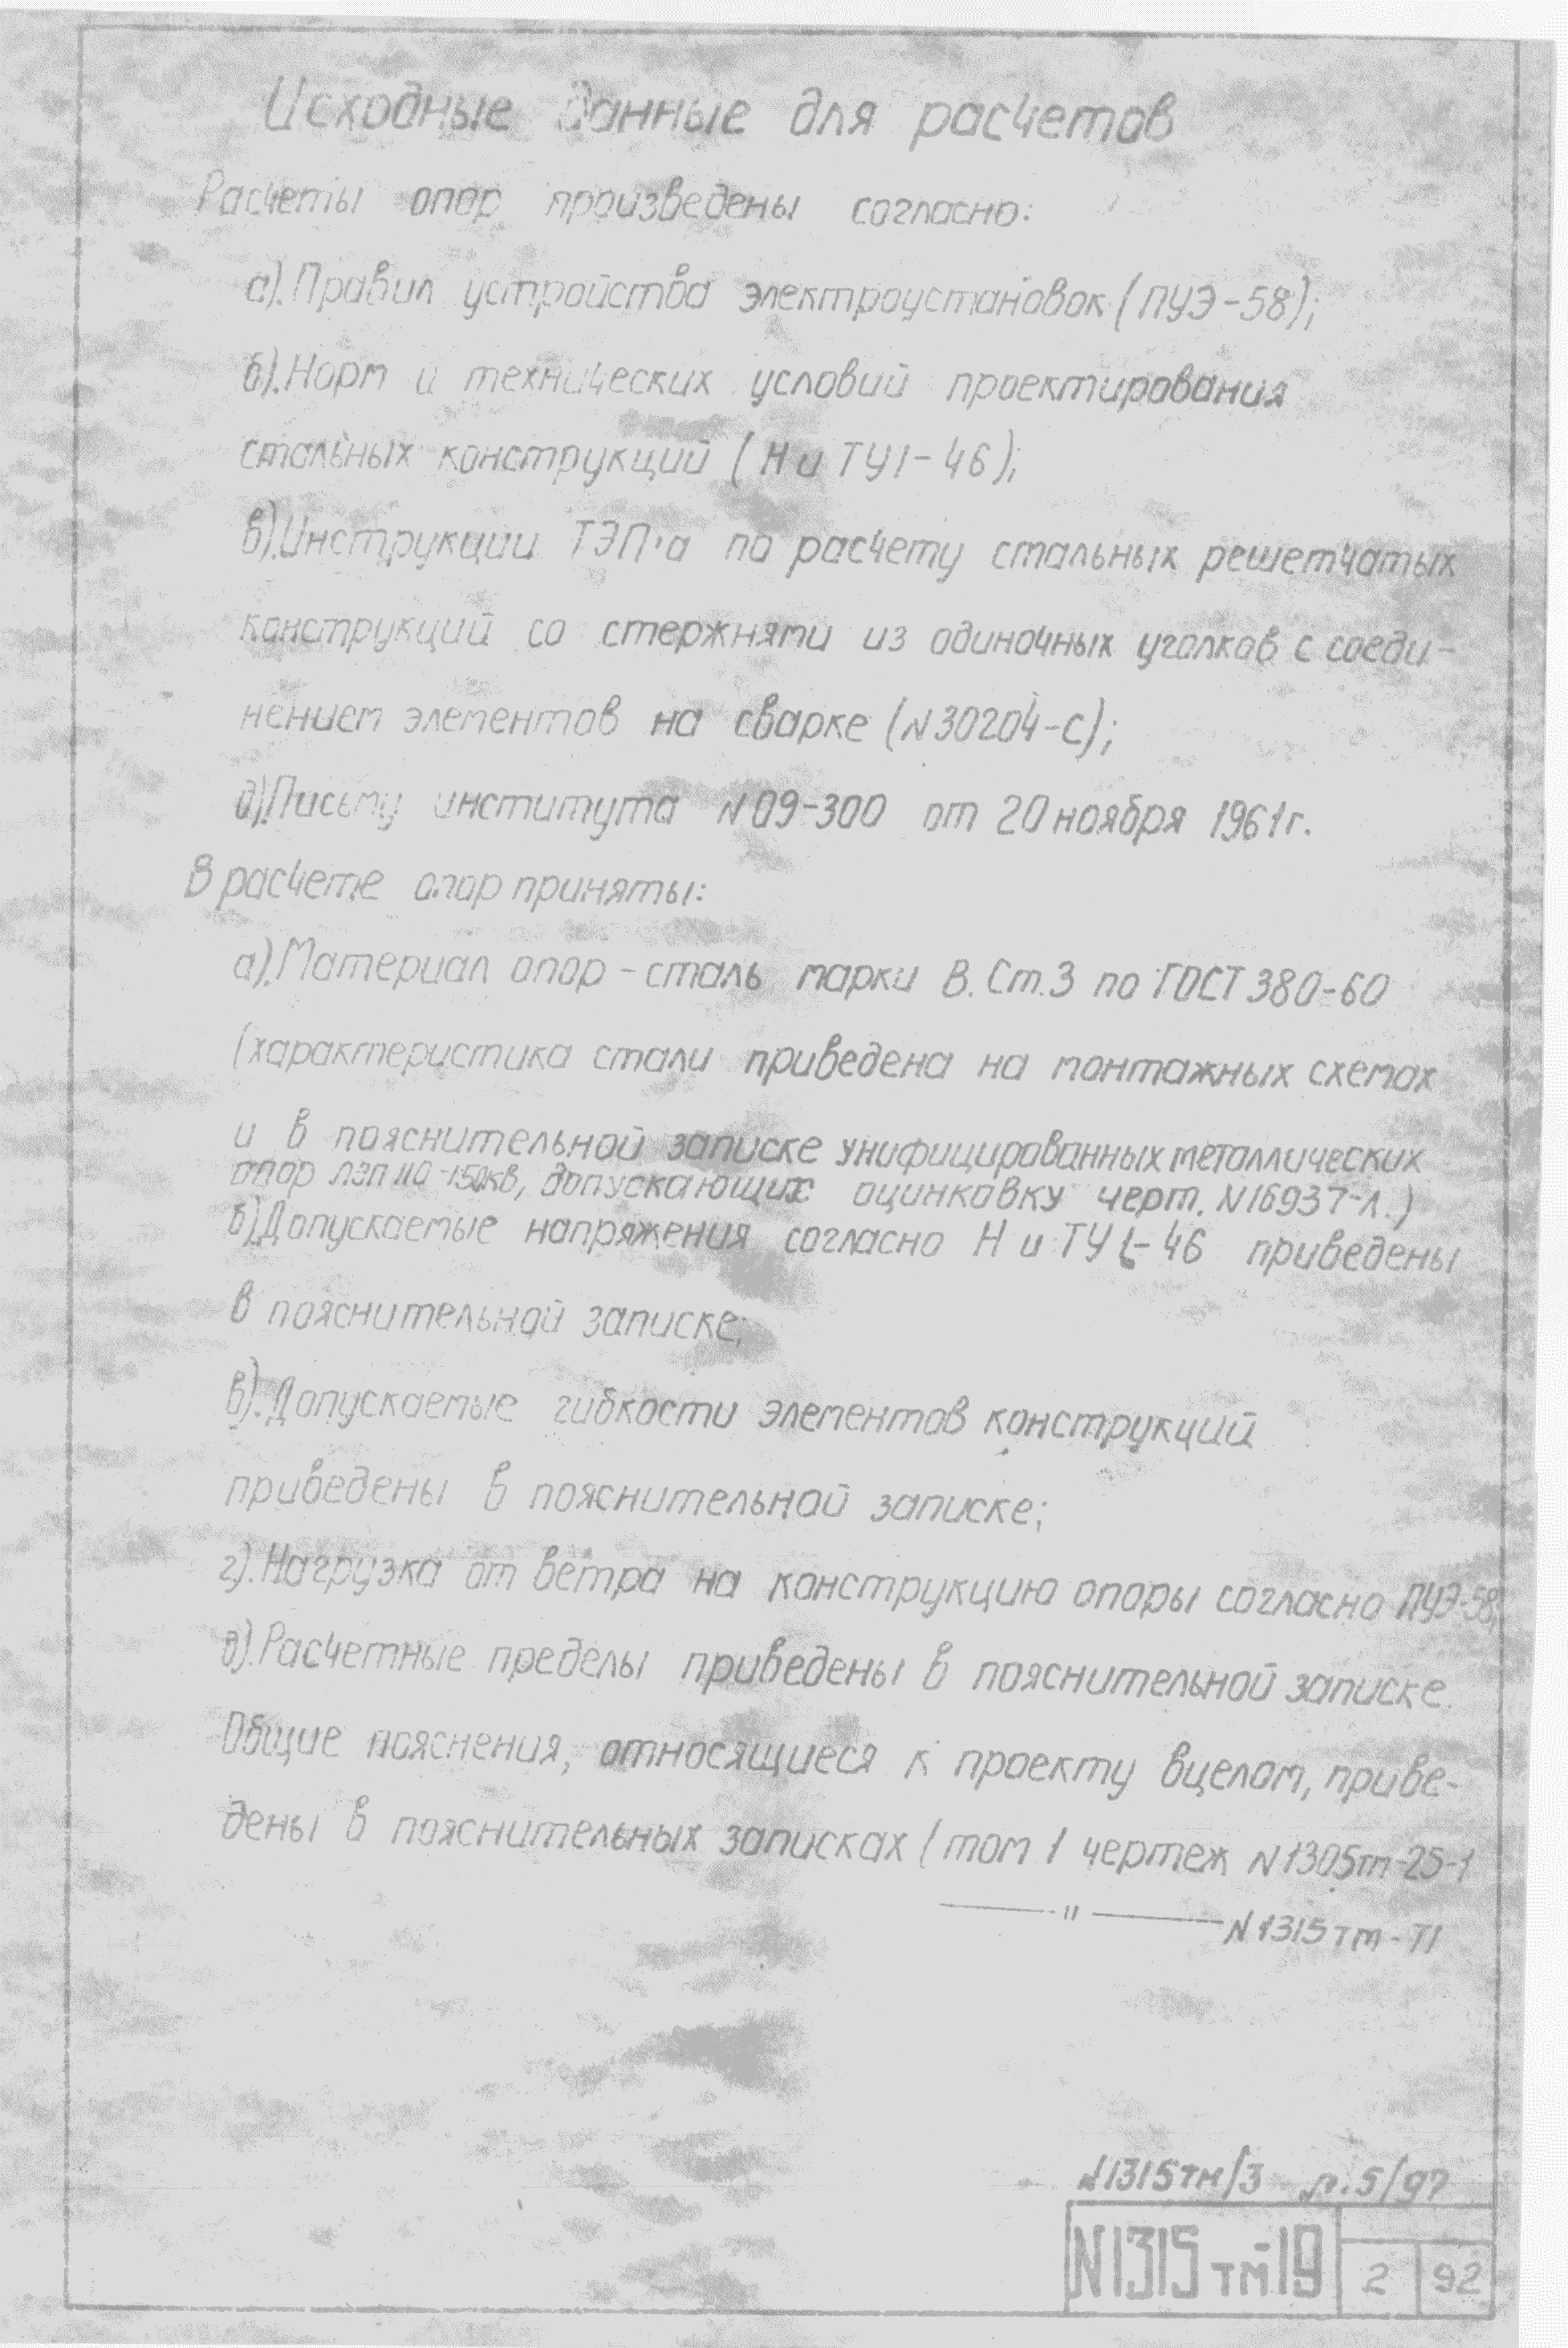 Исходные данные для расчетов
Расчеты опор произведены согласно:
а). Правил устройства электроустановок (ПУЭ-58);
б). Норм и технических условий проектирования
стальных конструкций (Н и ТУ1-46);
в). Инструкции ТЭП'а по расчету стальных решетчатых
конструкций со стержнями из одиночных уголков с соеди-
нением элементов на сварке (N30204-С);
д). Письму института N09-300 от 20 ноября 1961г.
В расчете опор приняты:
а). Материал опор - сталь марки В.Ст.3 по ГОСТ 380-60
(характеристика стали приведена на монтажных схемах
и в пояснительной записке унифицированных металлических
опор ЛЭП 110-150кв, допускающих оцинковку черт. N16937-Л.)
б). Допускаемые напряжения согласно Н и ТУ1-46 приведены
в пояснительной записке;
в). Допускаемые гибкости элементов конструкций
приведены в пояснительной записке;
г). Нагрузка от ветра на конструкцию опоры согласно ПУЭ-58;
д). Расчетные пределы приведены в пояснительной записке.
Общие пояснения, относящиеся к проекту вцелом, приве-
дены в пояснительных записках (том 1 чертеж N1305тм-25-1
— " — N1315тм-Т1
N1315тм/3 л.5/97
N1315тм-19 2 92